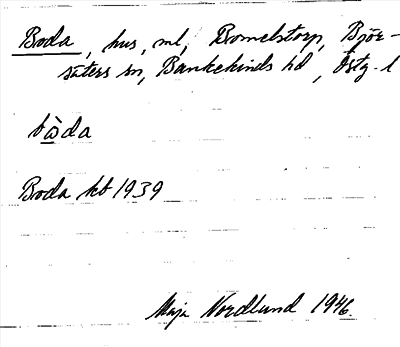 Boda, hus, ml, Bomelstorp, Björ-
säters sn, Bankekinds hd, Östg. l
bòda
Boda kb 1939
Maja Nordlund 1946.